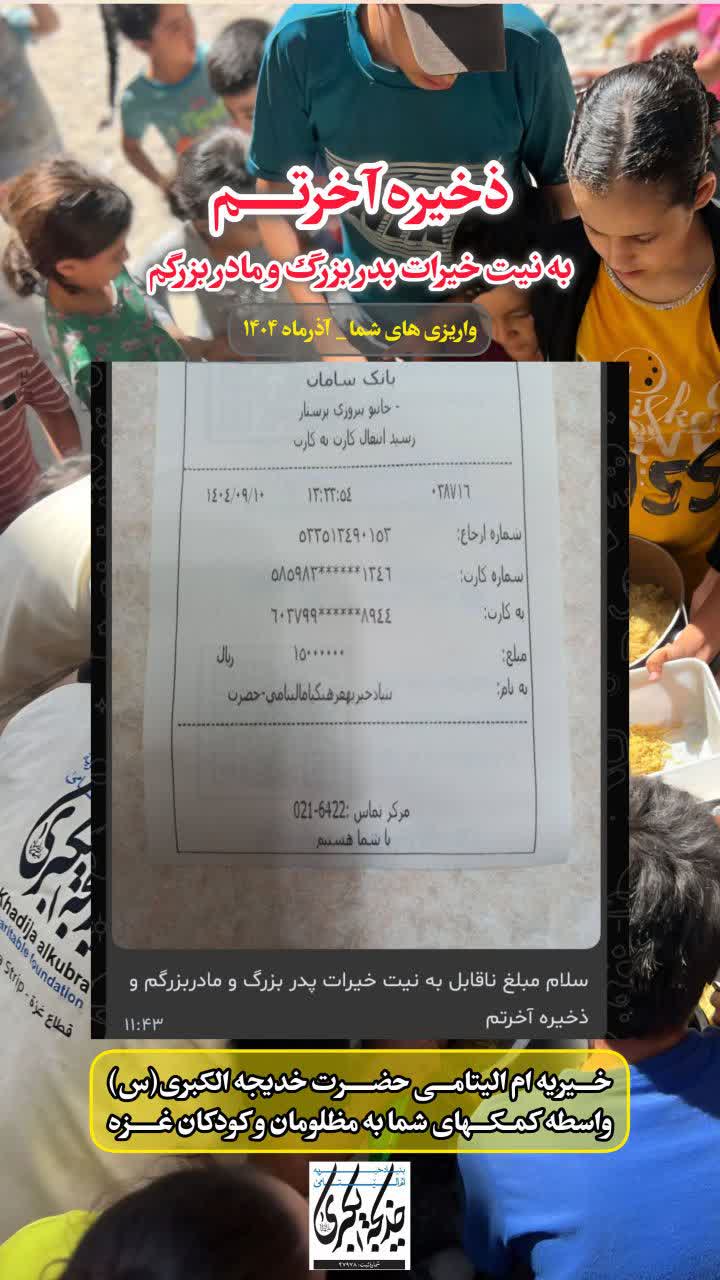 ذخیره آخرتم
به نیت خیرات پدربزرگ و مادربزرگم
واریزی های شما _ آذرماه ۱۴۰۴
بانک سامان
رسید انتقال کارت به کارت
۱۴۰۴/۰۹/۱۰ ۱۳:۳۳:۵۴ ۰۳۸۷۱۶
شماره ارجاع: ۵۳۳۵۱۳۴۹۰۱۵۳
شماره کارت: ۵۸۵۹۸۳******۱۳۴۶
به کارت: ۶۰۳۷۹۹******۸۹۴۴
مبلغ: ۱۵۰۰۰۰۰۰ ریال
به نام: بنیادخیریهفرهنگیامالیتامی-حضرت
مرکز تماس :6422-021
با شما هستیم
سلام مبلغ ناقابل به نیت خیرات پدر بزرگ و مادربزرگم و
ذخیره آخرتم
۱۱:۴۳
Khadija alkubra
aritable foundation
a Strip - قطاع غزة
خیریه ام الیتامی حضرت خدیجه الکبری(س)
واسطه کمکهای شما به مظلومان و کودکان غزه
خدیجة الکبری